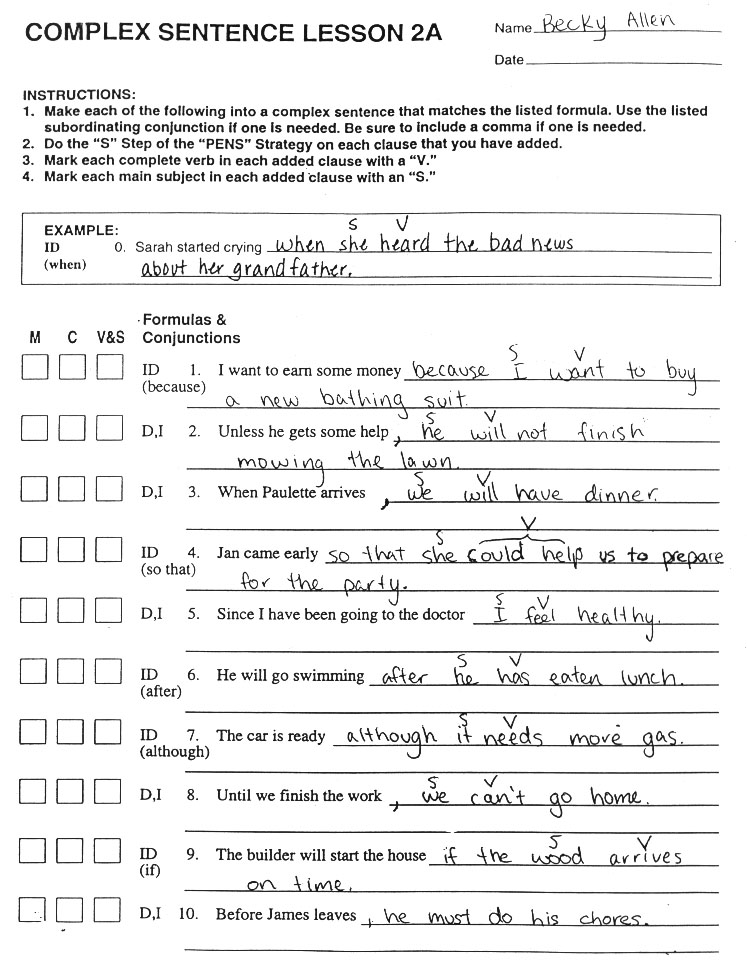 COMPLEX SENTENCE LESSON 2A
Name Becky Allen
Date
INSTRUCTIONS:
1. Make each of the following into a complex sentence that matches the listed formula. Use the listed
subordinating conjunction if one is needed. Be sure to include a comma if one is needed.
2. Do the “S” Step of the “PENS” Strategy on each clause that you have added.
3. Mark each complete verb in each added clause with a “V.”
4. Mark each main subject in each added clause with an “S.”
S V
EXAMPLE:
ID 0. Sarah started crying when she heard the bad news
(when) about her grandfather.
Formulas &
M C V&S Conjunctions
S V
ID 1. I want to earn some money because I want to buy
(because) a new bathing suit.
S V
D,I 2. Unless he gets some help, he will not finish
mowing the lawn.
S V
D,I 3. When Paulette arrives, we will have dinner.
S V
ID 4. Jan came early so that she could help us to prepare
(so that) for the party.
S V
D,I 5. Since I have been going to the doctor I feel healthy.
S V
ID 6. He will go swimming after he has eaten lunch.
(after)
S V
ID 7. The car is ready although it needs more gas.
(although)
S V
D,I 8. Until we finish the work, we can't go home.
S V
ID 9. The builder will start the house if the wood arrives
(if) on time.
D,I 10. Before James leaves, he must do his chores.